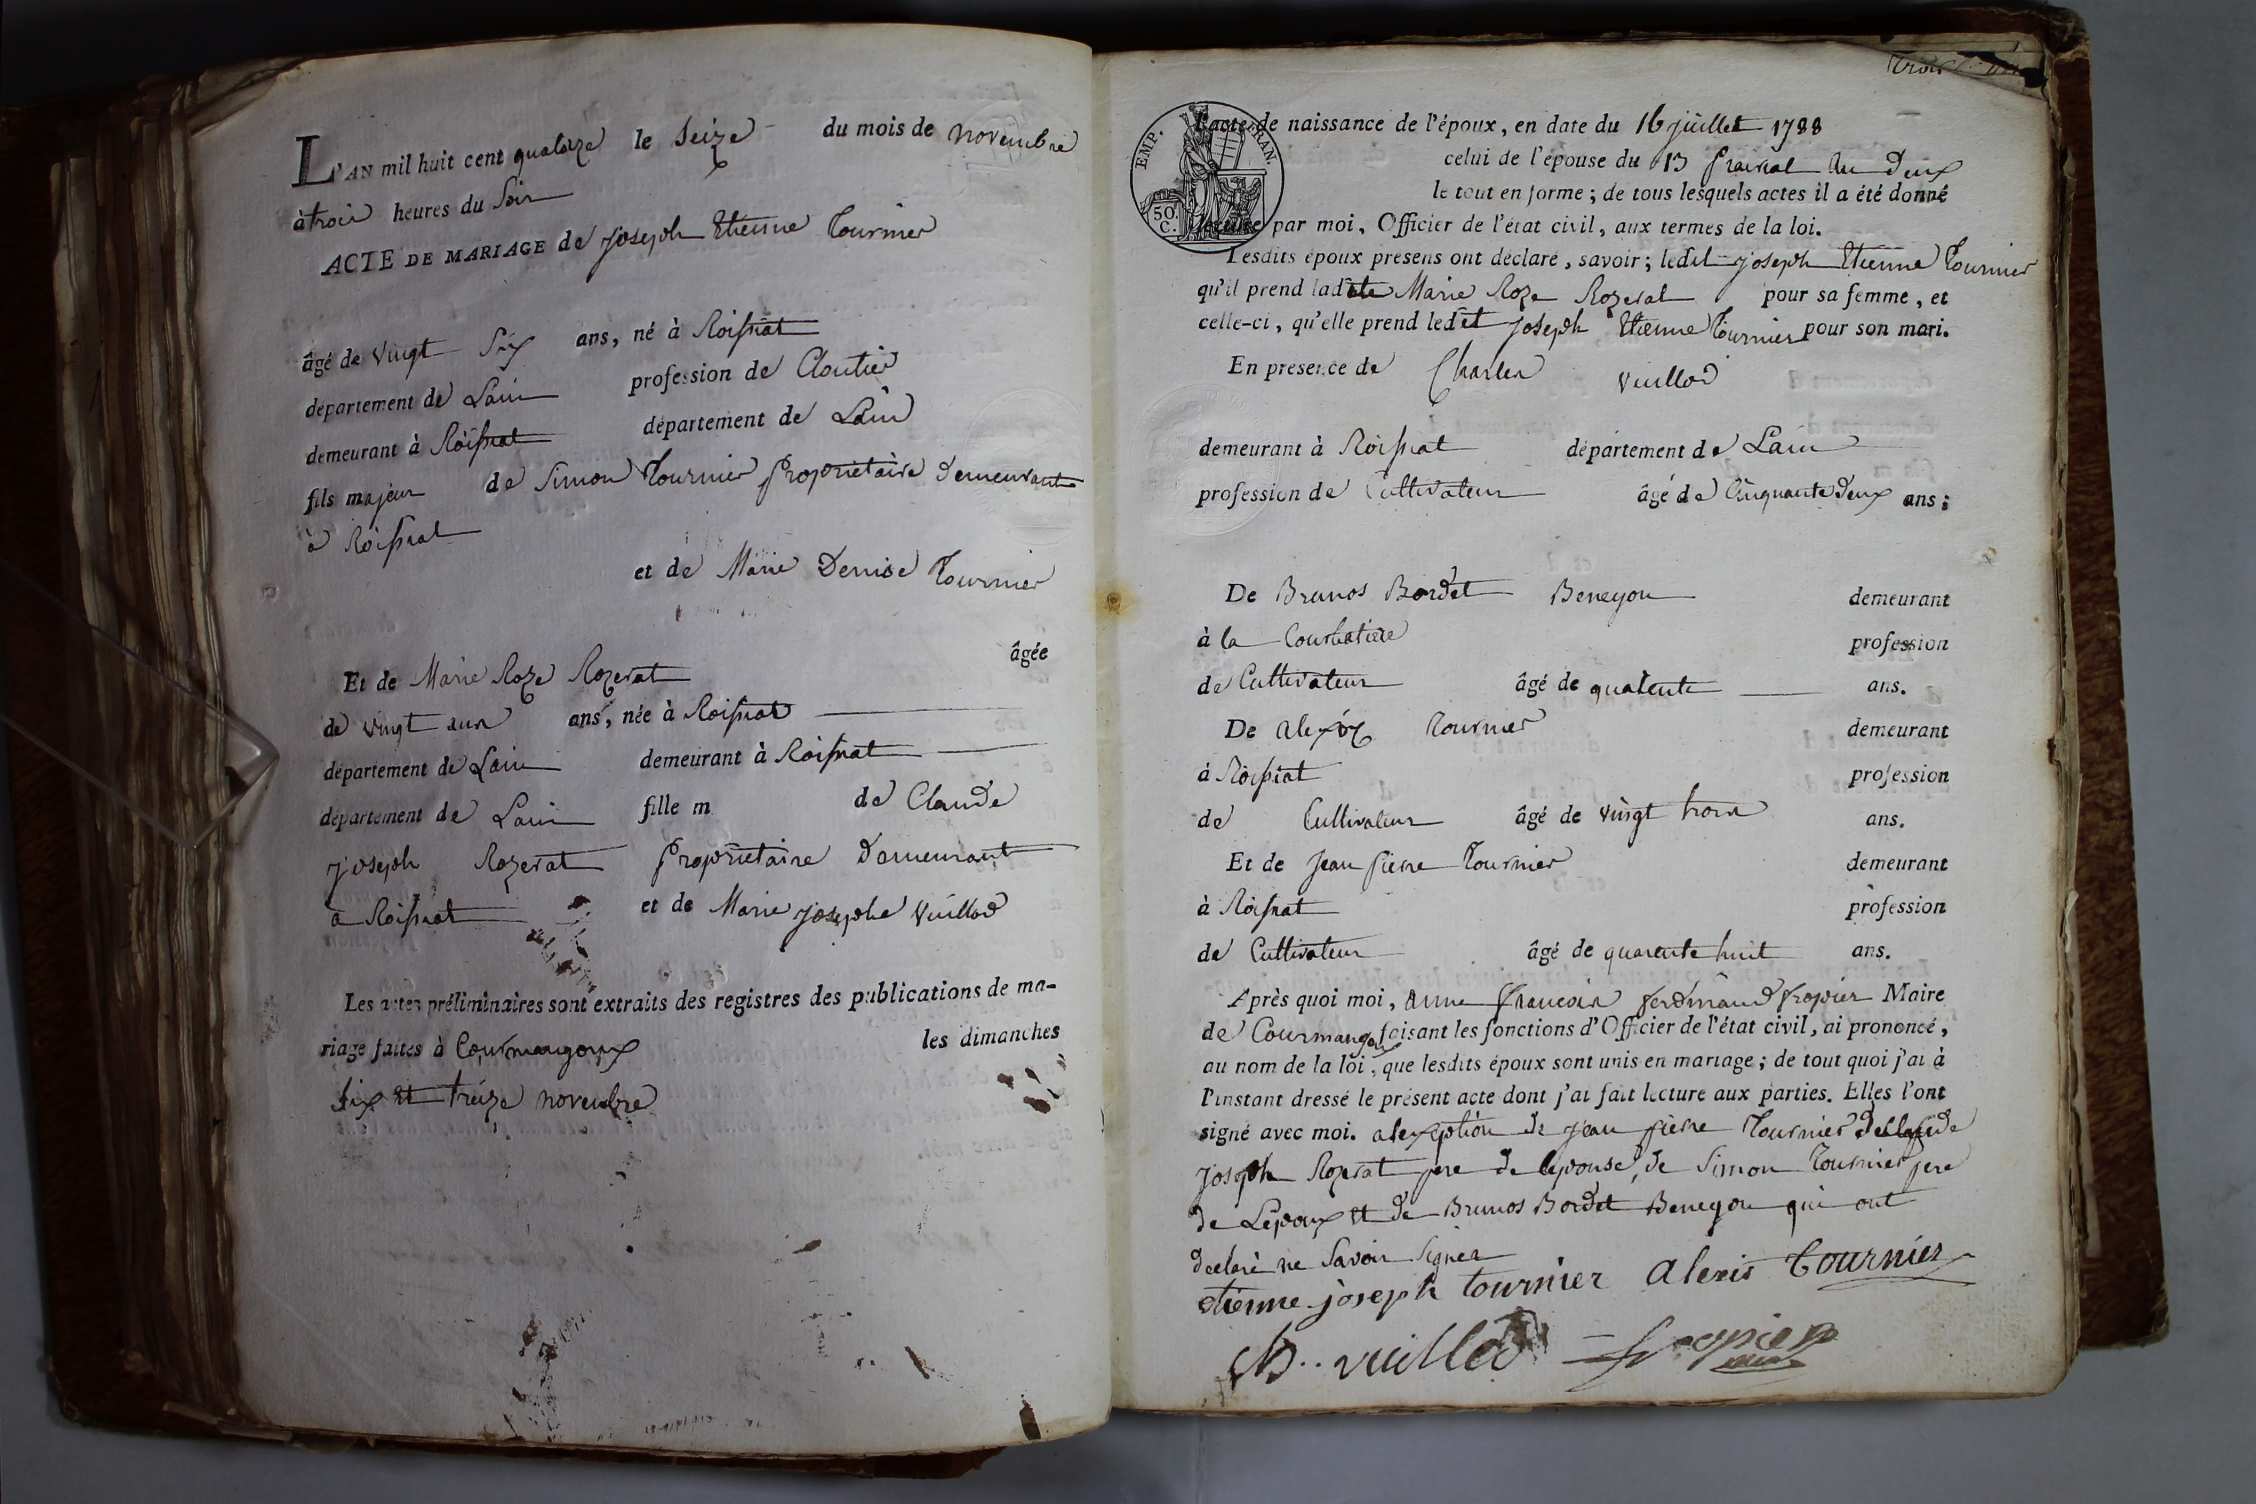 L'AN mil huit cent quatorze le Seize du mois de novembre
à trois heures du Soir
ACTE DE MARIAGE de Joseph Etienne Tournier
âgé de vingt Six ans, né à Roissiat
département de Lain profession de Cloutier
demeurant à Roissiat département de Lain
fils majeur de Simon Tournier propriétaire demeurant
à Roissiat
et de Marie Denise Tournier
Et de Marie Roze Rozerat âgée
de vingt ans, née à Roissiat
département de Lain demeurant à Roissiat
département de Lain fille m de Claude
Joseph Rozerat propriétaire Demeurant
a Roissiat et de Marie Josephe Vuillod
Les actes préliminaires sont extraits des registres des publications de ma-
riage faites à Courmangoux les dimanches
Six et treize novembre
trois
EMP. FRAN.
50. C.
L'acte de naissance de l'époux, en date du 16 juillet 1788
celui de l'épouse du 13 prairial an Deux
le tout en forme; de tous lesquels actes il a été donné
lecture par moi, Officier de l'état civil, aux termes de la loi.
Lesdits époux présens ont déclaré, savoir; ledit Joseph Etienne Tournier
qu'il prend ladite Marie Roze Rozerat pour sa femme, et
celle-ci, qu'elle prend ledit Joseph Etienne Tournier pour son mari.
En présence de Charles Vuillod
demeurant à Roissiat département de Lain
profession de Cultivateur âgé de Cinquante Deux ans;
De Brunos Bordet Beneyon demeurant
à la Courbatière profession
de Cultivateur âgé de quarente ans.
De Alexix Tournier demeurant
à Roissiat profession
de Cultivateur âgé de vingt trois ans.
Et de Jean pierre Tournier demeurant
à Roissiat profession
de Cultivateur âgé de quarente huit ans.
Après quoi moi, Anne françois ferdinand Maire
de Courmangoux faisant les fonctions d'Officier de l'état civil, ai prononcé,
au nom de la loi, que lesdits époux sont unis en mariage; de tout quoi j'ai à
l'instant dressé le présent acte dont j'ai fait lecture aux parties. Elles l'ont
signé avec moi. a lexeption de Jean pierre Tournier de Claude
Joseph Rozerat pere de lepouse, de Simon Tournier pere
de Lepoux et de Brunos Bordet Beneyon qui ont
declaré ne Savoir Signer
etienne joseph tournier alexis tournier
Ch.. vuillod